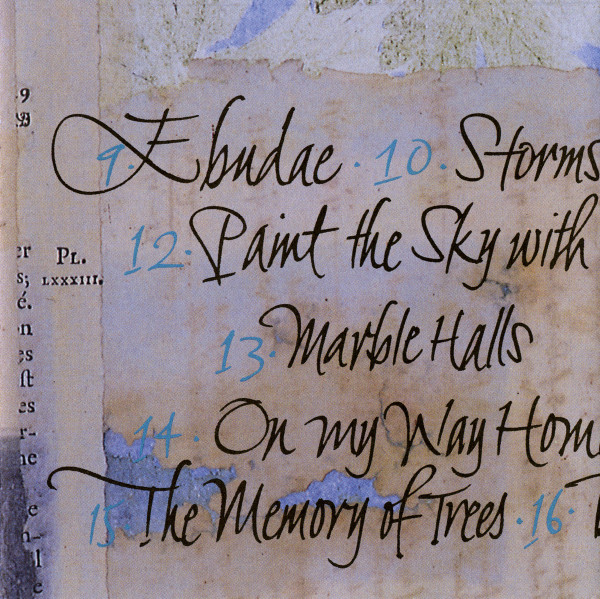 9. Ebudae . 10. Storms
12. Paint the Sky with
13. Marble Halls
14. On my Way Hom
15. The Memory of Trees . 16.
9
er
s;
é.
on
es
ſt
es
r-
ne
e
l
e
PL.
LXXXIII.